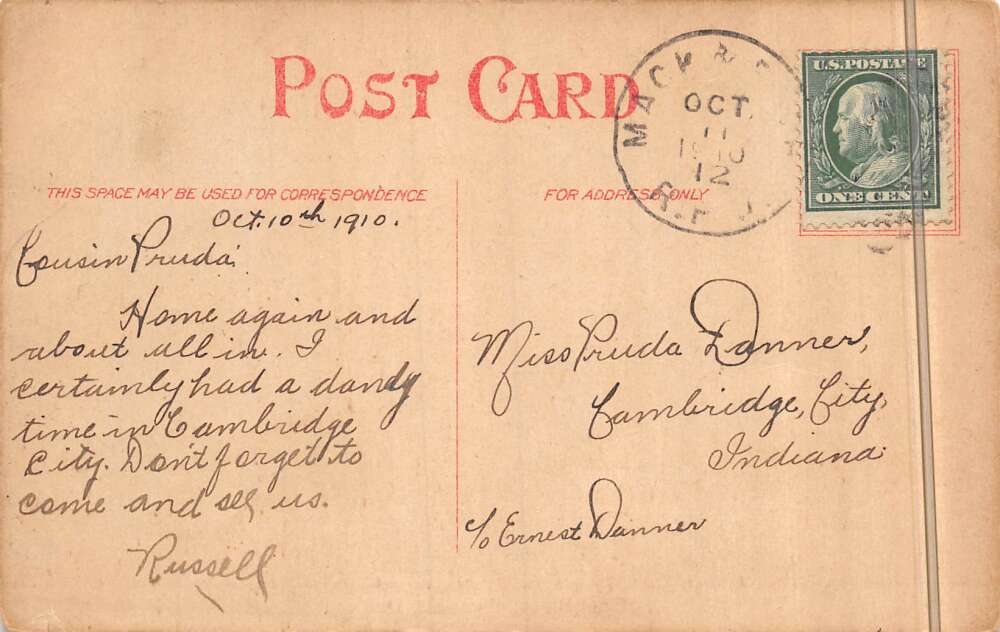 POST CARD
MACK &
OCT.
11
1910
12
R.P.O.
U.S. POSTAGE
ONE CENT
THIS SPACE MAY BE USED FOR CORRESPONDENCE
FOR ADDRESS ONLY
Oct. 10th 1910.
Cousin Pruda
Home again and
about all in. I
certainly had a dandy
time in Cambridge
City. Don't forget to
come and see us.
Russell
Miss Pruda Danner,
Cambridge, City,
Indiana.
c/o Ernest Danner